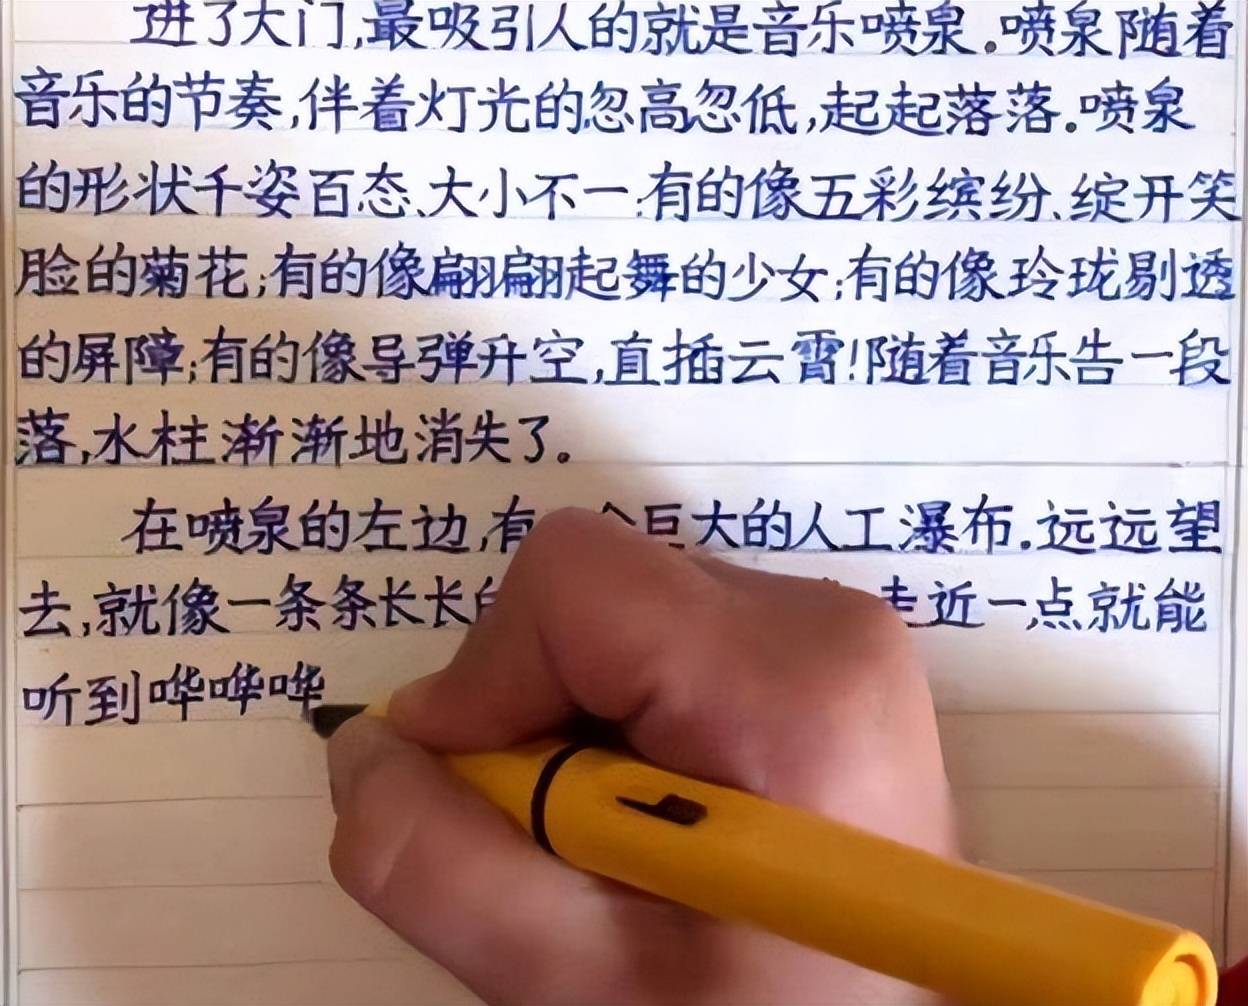 进了大门,最吸引人的就是音乐喷泉.喷泉随着
音乐的节奏,伴着灯光的忽高忽低,起起落落.喷泉
的形状千姿百态、大小不一:有的像五彩缤纷、绽开笑
脸的菊花;有的像翩翩起舞的少女;有的像玲珑剔透
的屏障;有的像导弹升空,直插云霄!随着音乐告一段
落,水柱渐渐地消失了。
在喷泉的左边,有 个巨大的人工瀑布.远远望
去,就像一条条长长 走近一点就能
听到哗哗哗